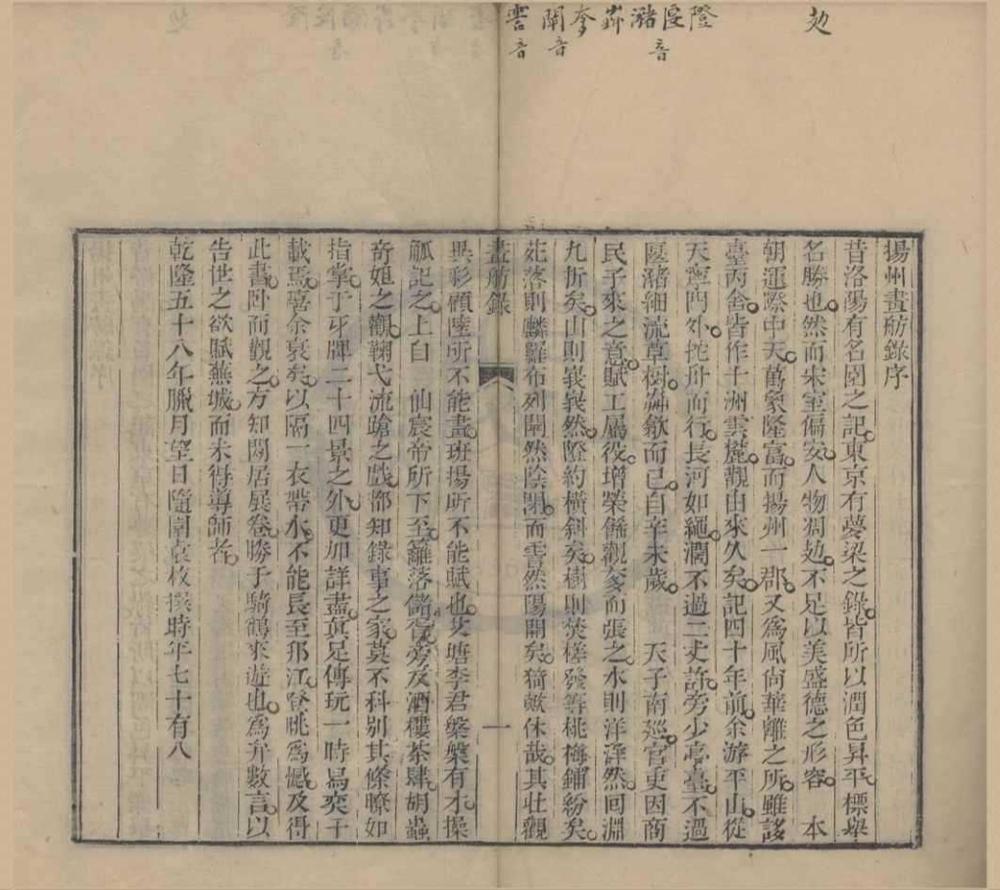 攰
隥
匽音
潴
奓
閛音
霅音
揚州畫舫錄序
昔洛陽有名園之記東京有夢梁之錄皆所以潤色昇平標舉
名勝也然而宋室偏安人物凋攰不足以美盛德之形容 本
朝運際中天萬象隆富而揚州一郡又為風尚華離之所雖詼
臺丙舍皆作十洲雲麓觀由來久矣記四十年前余游平山從
天寧門外拕舟而行長河如繩濶不過二丈許旁少亭臺不過
匽潴細流草樹歙而已自辛未歲 天子南巡官吏因商
民子來之意賦工屬役增榮飾觀奓而張之水則洋洋然回淵
九折矣山則峩峩然隥約橫斜矣樹則焚槎發等桃梅鋪紛矣
苑落則鱗羅布列閛然陰閉而霅然陽開矣猗歟休哉其壯觀
畫舫錄 一
異彩顧陸所不能畫班揚所不能賦也艾塘李君槃槃有才操
觚記之上自 仙宸帝所下至籬落儲胥旁及酒樓茶肆胡蟲
奇妲之觀鞠弋流蹌之戲都知錄事之家莫不科別其條暸如
指掌于牙牌二十四景之外更加詳盡眞足傳玩一時舄奕千
載焉嘻余衰矣以隔一衣帶水不能長至邗江登眺為憾及得
此書臥而觀之方知閑居展卷勝于騎鶴來遊也為弁數言以
告世之欲賦蕪城而未得導師者
乾隆五十八年臘月望日隨園袁枚撰時年七十有八